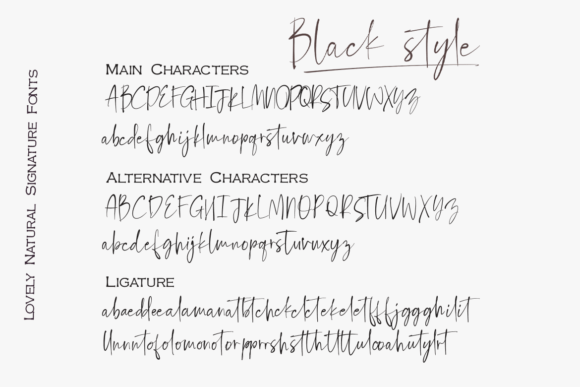 Black style
LOVELY NATURAL SIGNATURE FONTS
MAIN CHARACTERS
ABCDEFGHIJKLMNOPQRSTUVWXYZ
abcdefghijklmnopqrstuvwxyz
ALTERNATIVE CHARACTERS
ABCDEFGHIJKLMNOPQRSTUVWXYZ
abcdefghijklmnopqrstuvwxyz
LIGATURE